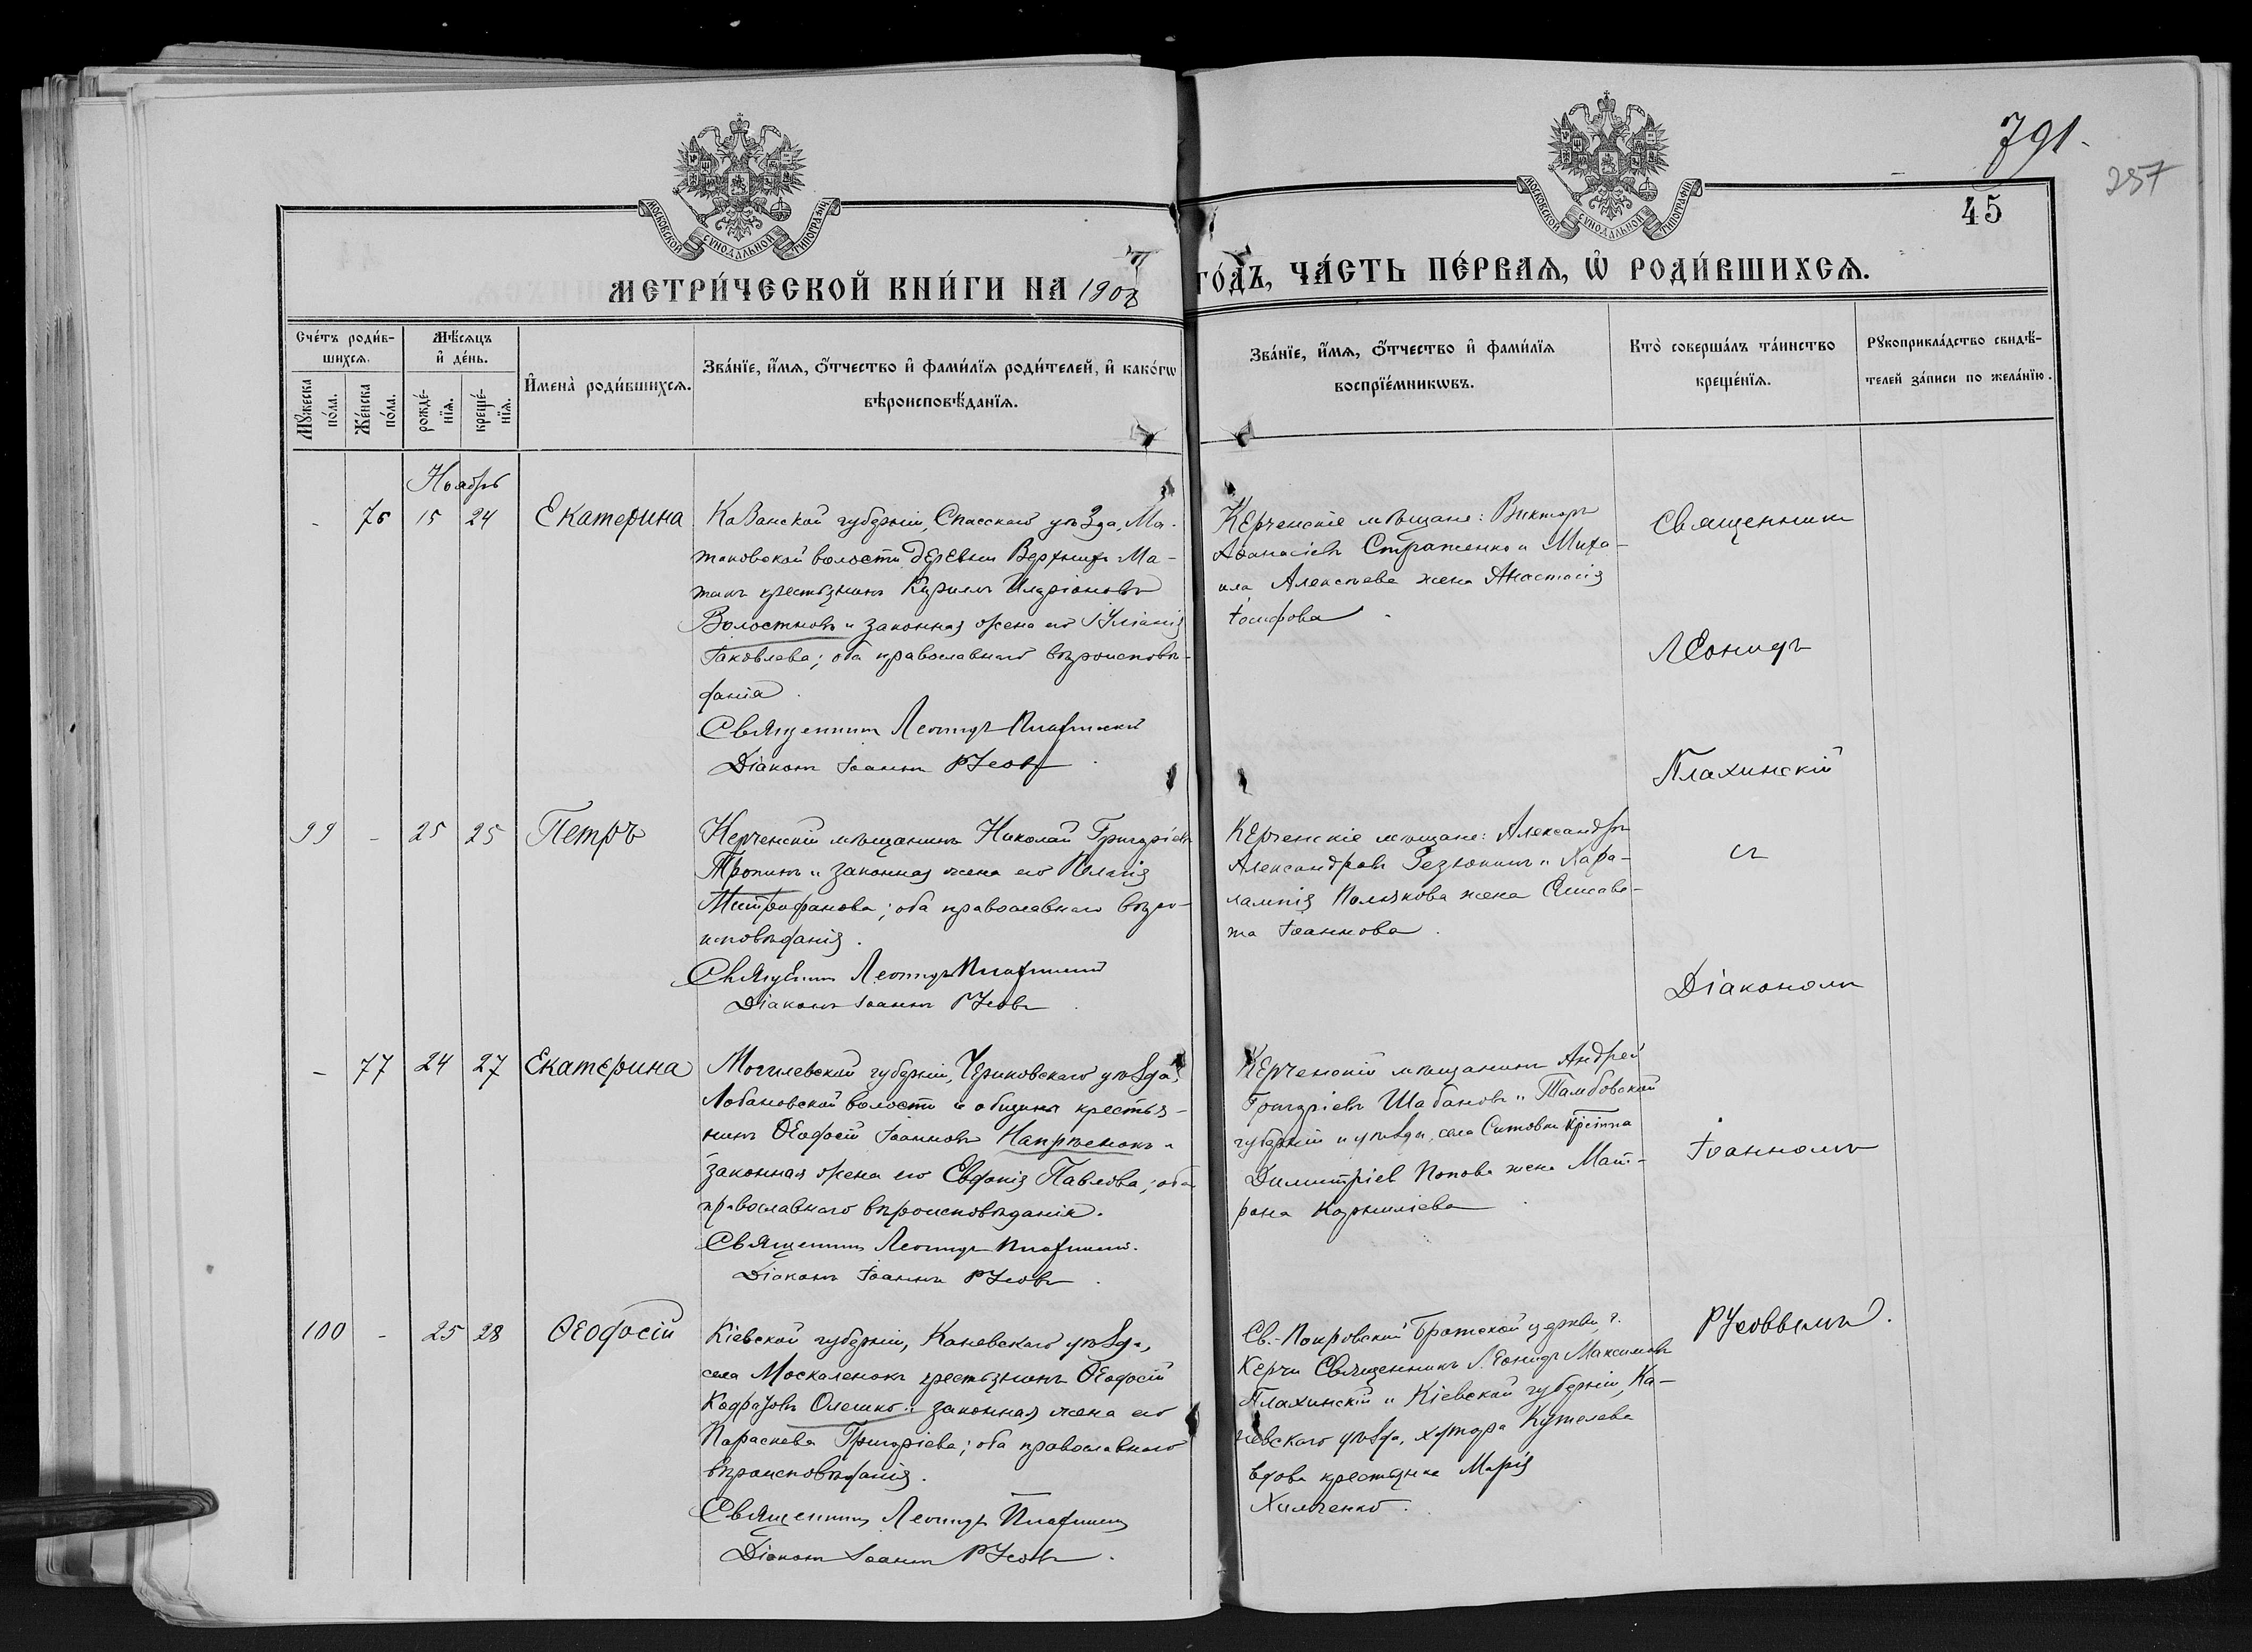 791.
257
45
МОСКОВСКОЙ СѴНОДАЛЬНОЙ ТИПОГРАФІИ
МОСКОВСКОЙ СѴНОДАЛЬНОЙ ТИПОГРАФІИ
МЕТРИ́ЧЕСКОЙ КНИ́ГИ НА 1908 ГО́ДЪ, ЧА́СТЬ ПЕ́РВАѦ, Ѡ҆ РОДИ́ВШИХСѦ.
Сче́тъ роди́в-
шихсѧ.
Мꙋ́жеска по́ла.
Же́нска по́ла.
Мѣ́сѧцъ
и҆ де́нь.
рожде́-
нїѧ.
креще́-
нїѧ.
И҆мена̀ роди́вшихсѧ.
Зва́нїе, и҆́мѧ, ѻ҆́тчество и҆ фами́лїѧ роди́телей, и҆ како́гѡ
вѣроисповѣ́данїѧ.
Зва́нїе, и҆́мѧ, ѻ҆́тчество и҆ фами́лїѧ
воспрїе́мникѡвъ.
Кто̀ соверша́лъ та́инство
креще́нїѧ.
Рꙋкоприкла́дство свидѣ́-
телей за́писи по жела́нїю.
Ноябрь
- 76 15 24 Екатерина
Казанской губерніи, Спасскаго уѣзда, Ма-
таковской волости деревни Верхнихъ Ма-
такъ крестьянинъ Кириллъ Иларіоновъ
Волостновъ и законная жена его Іуліанія
Іаковлева; оба православнаго вѣроисповѣ-
данія.
Священникъ Леонидъ Плахинскій
Діаконъ Іоаннъ Русовъ.
Керченскіе мѣщане: Викторъ
Аѳанасіевъ Страшенко и Миха-
ила Алексѣева жена Анастасія
Іосифова.
Священникъ
Леонидъ
Плахинскій
съ
Діакономъ
Іоанномъ
Русовымъ.
99 - 25 25 Петръ
Керченскій мѣщанинъ Николай Григоріевъ
Тропинъ и законная жена его Пелагія
Митрофанова; оба православнаго вѣро-
исповѣданія.
Священникъ Леонидъ Плахинскій
Діаконъ Іоаннъ Русовъ.
Керченскіе мѣщане: Александръ
Александровъ Зезюкинъ и Хара-
лампія Полякова жена Елисаве-
та Іоаннова.
- 77 24 27 Екатерина
Могилевской губерніи, Чериковскаго уѣзда,
Лобановской волости и общины крестья-
нинъ Ѳеодосій Іоанновъ Напрѣенокъ и
законная жена его Евдокія Павлова; оба
православнаго вѣроисповѣданія.
Священникъ Леонидъ Плахинскій.
Діаконъ Іоаннъ Русовъ.
Керченскій мѣщанинъ Андрей
Григоріевъ Шабановъ и Тамбовской
губерніи и уѣзда, села Ситовки кр-нина
Димитріев Попова жена Мат-
рона Корниліева.
100 - 25 28 Ѳеодосій
Кіевской губерніи, Каневскаго уѣзда,
села Москаленокъ крестьянинъ Ѳеодосій
Кодратовъ Олешко и законная жена его
Параскева Григоріева; оба православнаго
вѣроисповѣданія.
Священникъ Леонидъ Плахинскій
Діаконъ Іоаннъ Русовъ.
Св.-Покровской Братской церкви г.
Керчи Священникъ Леонидъ Максимовъ
Плахинскій и Кіевской губерніи, Ка-
невскаго уѣзда, хутора Кутелева
вдова крестьянка Марія
Химченко.